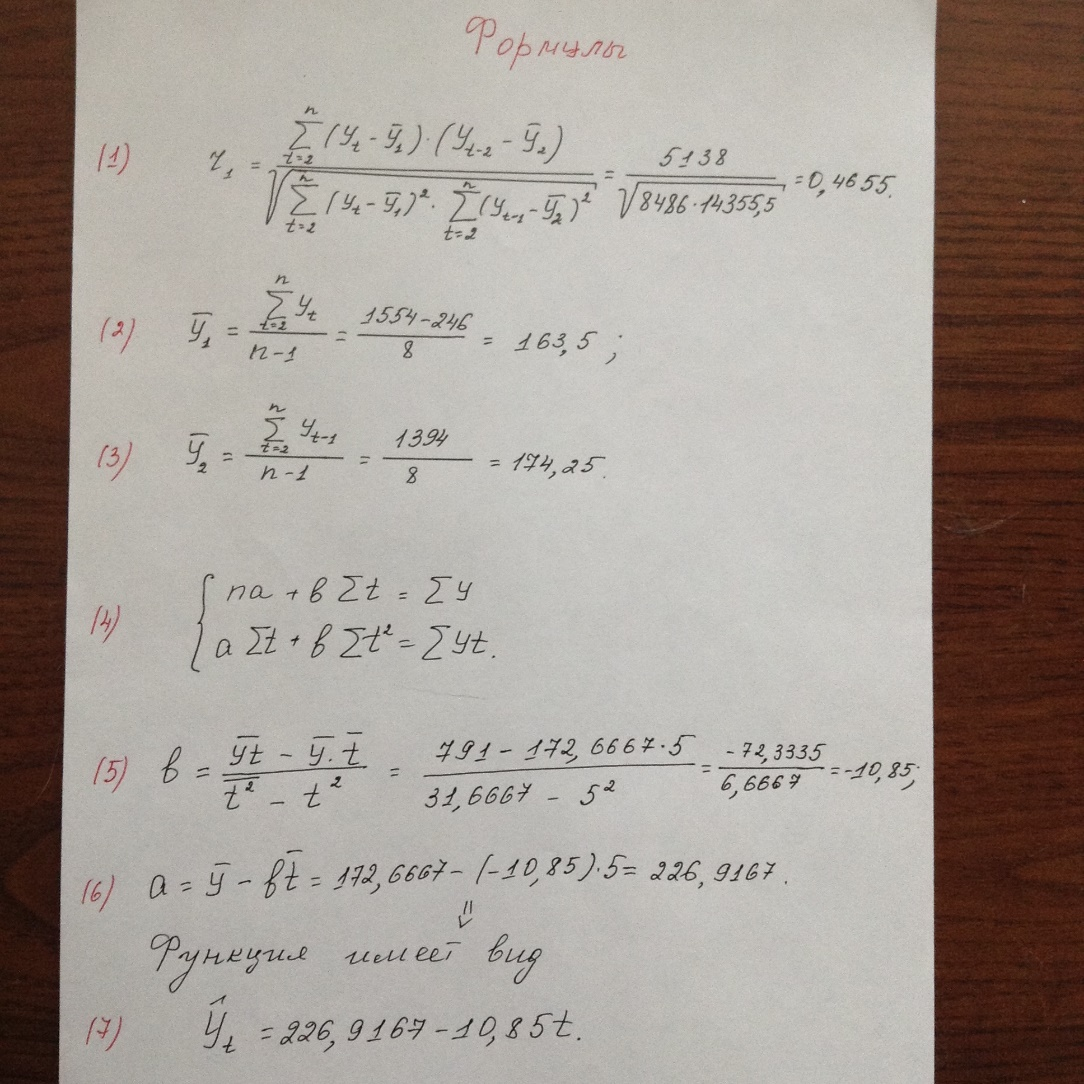 Формулы
(1) r₁ = ∑ⁿ_{t=2} (y_t - ȳ₁)·(y_{t-2} - ȳ₂) / √(∑ⁿ_{t=2} (y_t - ȳ₁)² · ∑ⁿ_{t=2} (y_{t-1} - ȳ₂)²) = 5138 / √(8486·14355,5) = 0,4655.
(2) ȳ₁ = ∑ⁿ_{t=2} y_t / (n-1) = (1554-246) / 8 = 163,5 ;
(3) ȳ₂ = ∑ⁿ_{t=2} y_{t-1} / (n-1) = 1394 / 8 = 174,25.
(4) { na + в ∑t = ∑y
a ∑t + в ∑t² = ∑yt.
(5) в = (y̅t̅ - ȳ·t̄) / (t̅² - t²) = (791 - 172,6667·5) / (31,6667 - 5²) = -72,3335 / 6,6667 = -10,85;
(6) a = ȳ - вt̄ = 172,6667 - (-10,85)·5 = 226,9167.
⇓
Функция имеет вид
(7) ŷ_t = 226,9167 - 10,85t.